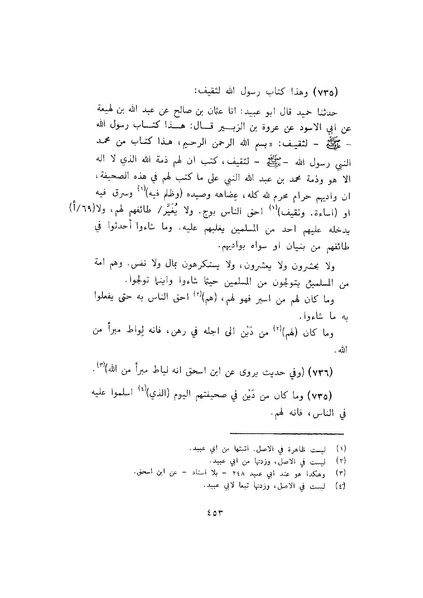 (٧٣٥) وهذا كتاب رسول الله لثقيف:
حدثنا حميد قال ابو عبيد: انا عثمان بن صالح عن عبد الله بن لهيعة
عن ابي الاسود عن عروة بن الزبير قال: هذا كتاب رسول الله
- ﷺ - لثقيف: «بسم الله الرحمن الرحيم، هذا كتاب من محمد
النبي رسول الله - ﷺ - لثقيف، كتب ان لهم ذمة الله الذي لا اله
الا هو وذمة محمد بن عبد الله النبي على ما كتب لهم في هذه الصحيفة،
ان واديهم حرام محرم لله كله، عِضاهه وصيده (وظلم فيه)(١) وسرق فيه
او (اساءة. وثقيف)(١) احق الناس بوج. ولا يُعَبَّر/ طائفهم لهم، ولا(٦٩/أ)
يدخله عليهم احد من المسلمين يغلبهم عليه. وما شاءوا أحدثوا في
طائفهم من بنيان او سواه بواديهم.
ولا يحشرون ولا يعشرون، ولا يستكرهون بمال ولا نفس. وهم امة
من المسلمين يتولجون من المسلمين حيثما شاءوا واينما تولجوا.
وما كان لهم من اسير فهو لهم، (هم)(٢) احق الناس به حتى يفعلوا
به ما شاءوا.
وما كان (لهم)(٢) من دَيْن الى اجله في رهن، فانه لِواط مبرأ من
الله.
(٧٣٦) (وفي حديث يروى عن ابن اسحق انه لياط مبرأ من الله)(٣).
(٧٣٥) وما كان من دَيْن في صحيفتهم اليوم (الذي)(٤) اسلموا عليه
في الناس، فانه لهم.
(١) ليست ظاهرة في الاصل. اثبتها من ابي عبيد.
(٢) ليست في الاصل، وزدتها من ابي عبيد.
(٣) وهكذا هو عند ابي عبيد ٢٤٨ - بلا اسناد - عن ابن اسحق.
(٤) ليست في الاصل، وزدتها تبعا لابي عبيد.
٤٥٣